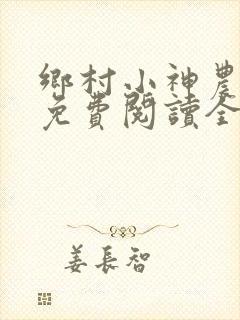 鄉村小神農
免費閱讀全
姜長智